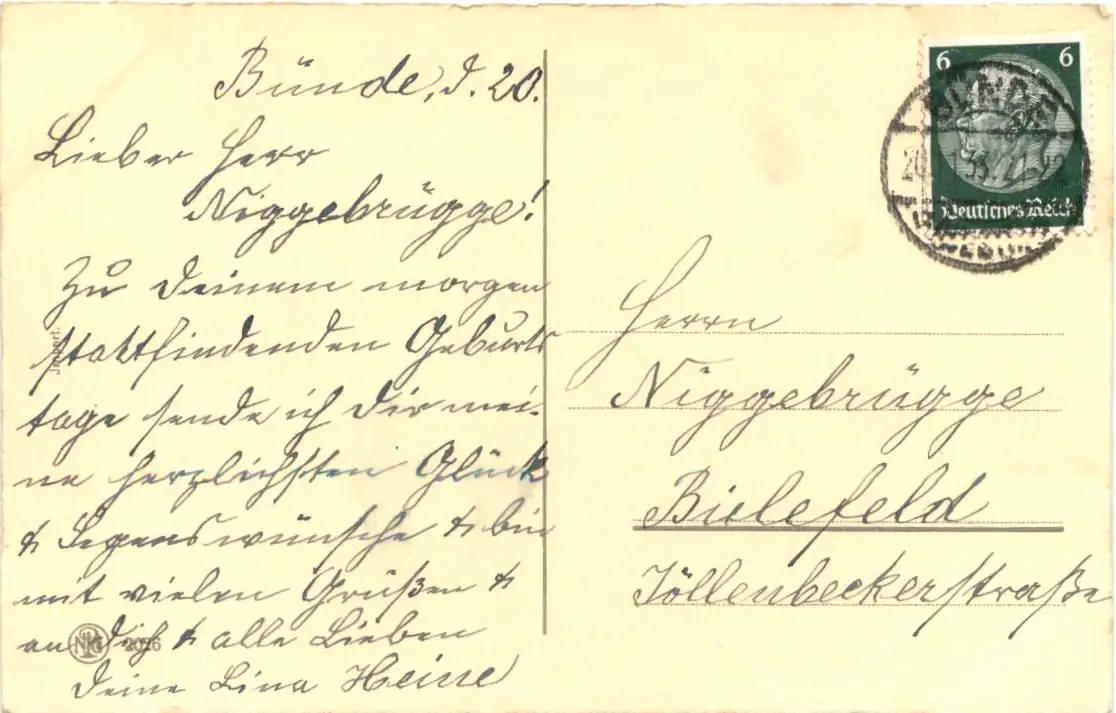 Bünde, d. 20.
Lieber Herr
Niggebrügge!
Zu Deinem morgen
stattfindenden Geburts
tage sende ich Dir mei-
ne herzlichsten Glück
& Segenswünsche & bin
mit vielen Grüßen &
an Dich & alle Lieben
Deine Lina Heine
Import.
NPG
2026
6 6
Deutsches Reich
BÜNDE
Herrn
Niggebrügge
Bielefeld
Jöllenbeckerstraße